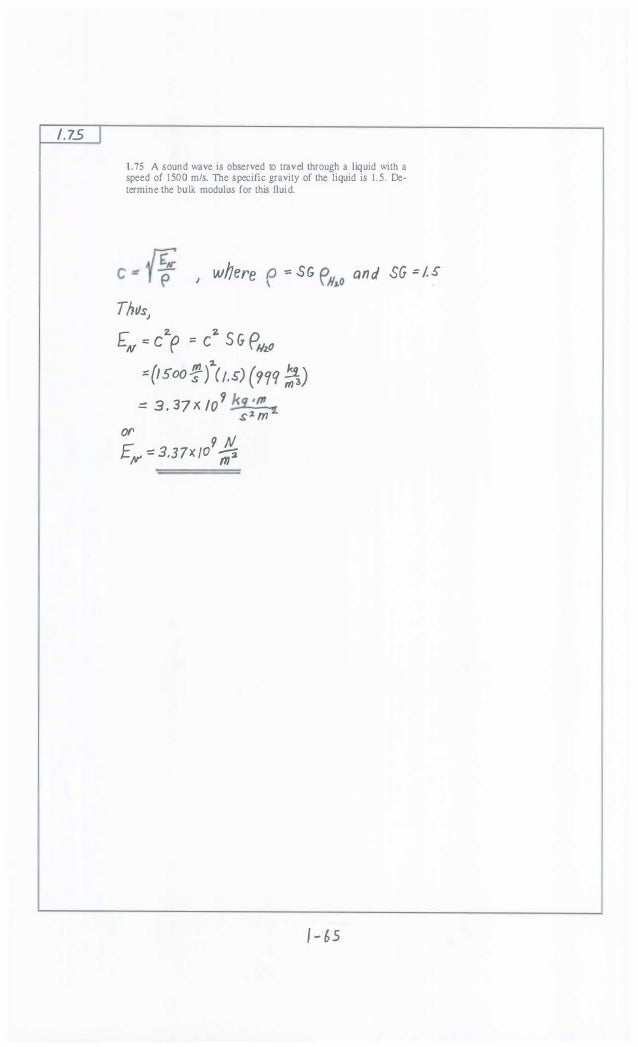 1.75
1.75 A sound wave is observed to travel through a liquid with a
speed of 1500 m/s. The specific gravity of the liquid is 1.5. De-
termine the bulk modulus for this fluid.
c = √(E_v/ρ) , where ρ = SG ρ_H₂O and SG = 1.5
Thus,
E_v = c²ρ = c² SG ρ_H₂O
= (1500 m/s)² (1.5) (999 kg/m³)
= 3.37 x 10⁹ kg·m/s²m²
or
E_v = 3.37 x 10⁹ N/m²
1-65